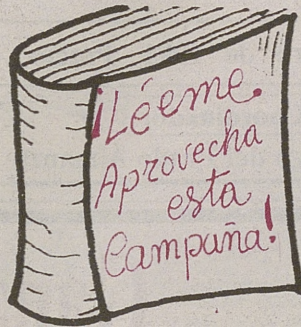 ¡Léeme.
Aprovecha
esta
Campaña!